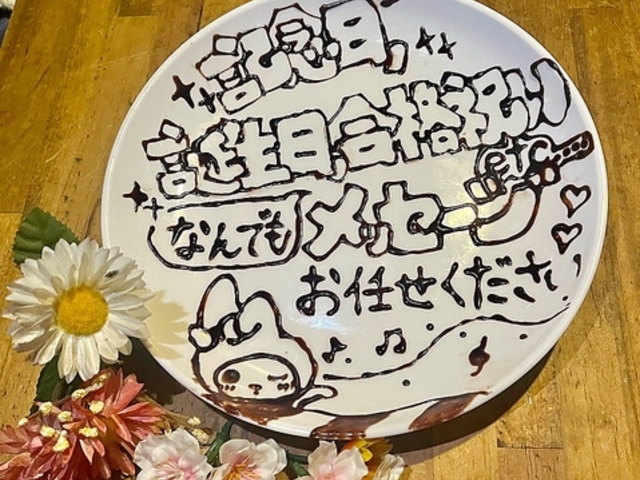 記念日、
誕生日、合格祝い
etc
なんでも メッセージ
お任せくださ